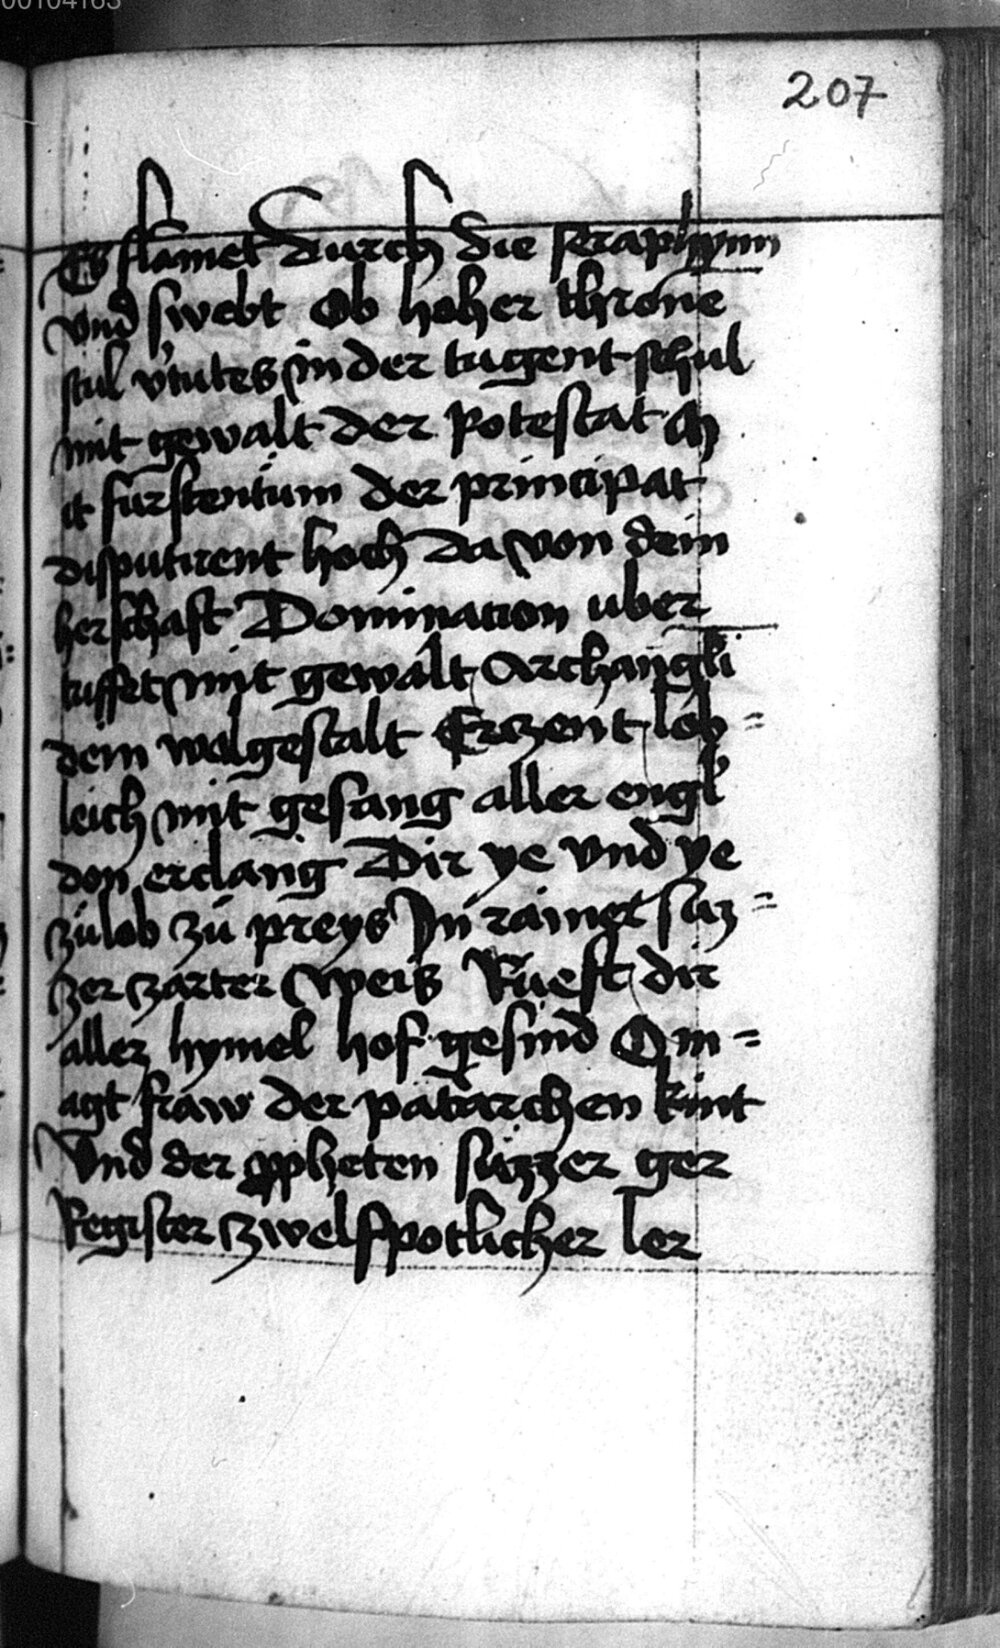 00104163
207
Es flamet durch die seraphynn
vnd swebt Ob hoher throne
stul v'tutes in der tugent schul
mit gewalt der Potestat Ach
it furstentum der principat
disputirent hoch Da von dein
herschafft Domination uber
tuffet mit gewalt Archangeli
dem wolgestalt Erczent lob =
leich mit gesang aller engl'
don erclang Dir ye vnd ye
zu lob zu preys In rainet suz =
zer zarter weis Rueft dir
aller hymel hof gesind O m =
agt fraw der patarchen kint
Vnd der ppheten suzzer ger
Register zwelfpotlicher ler